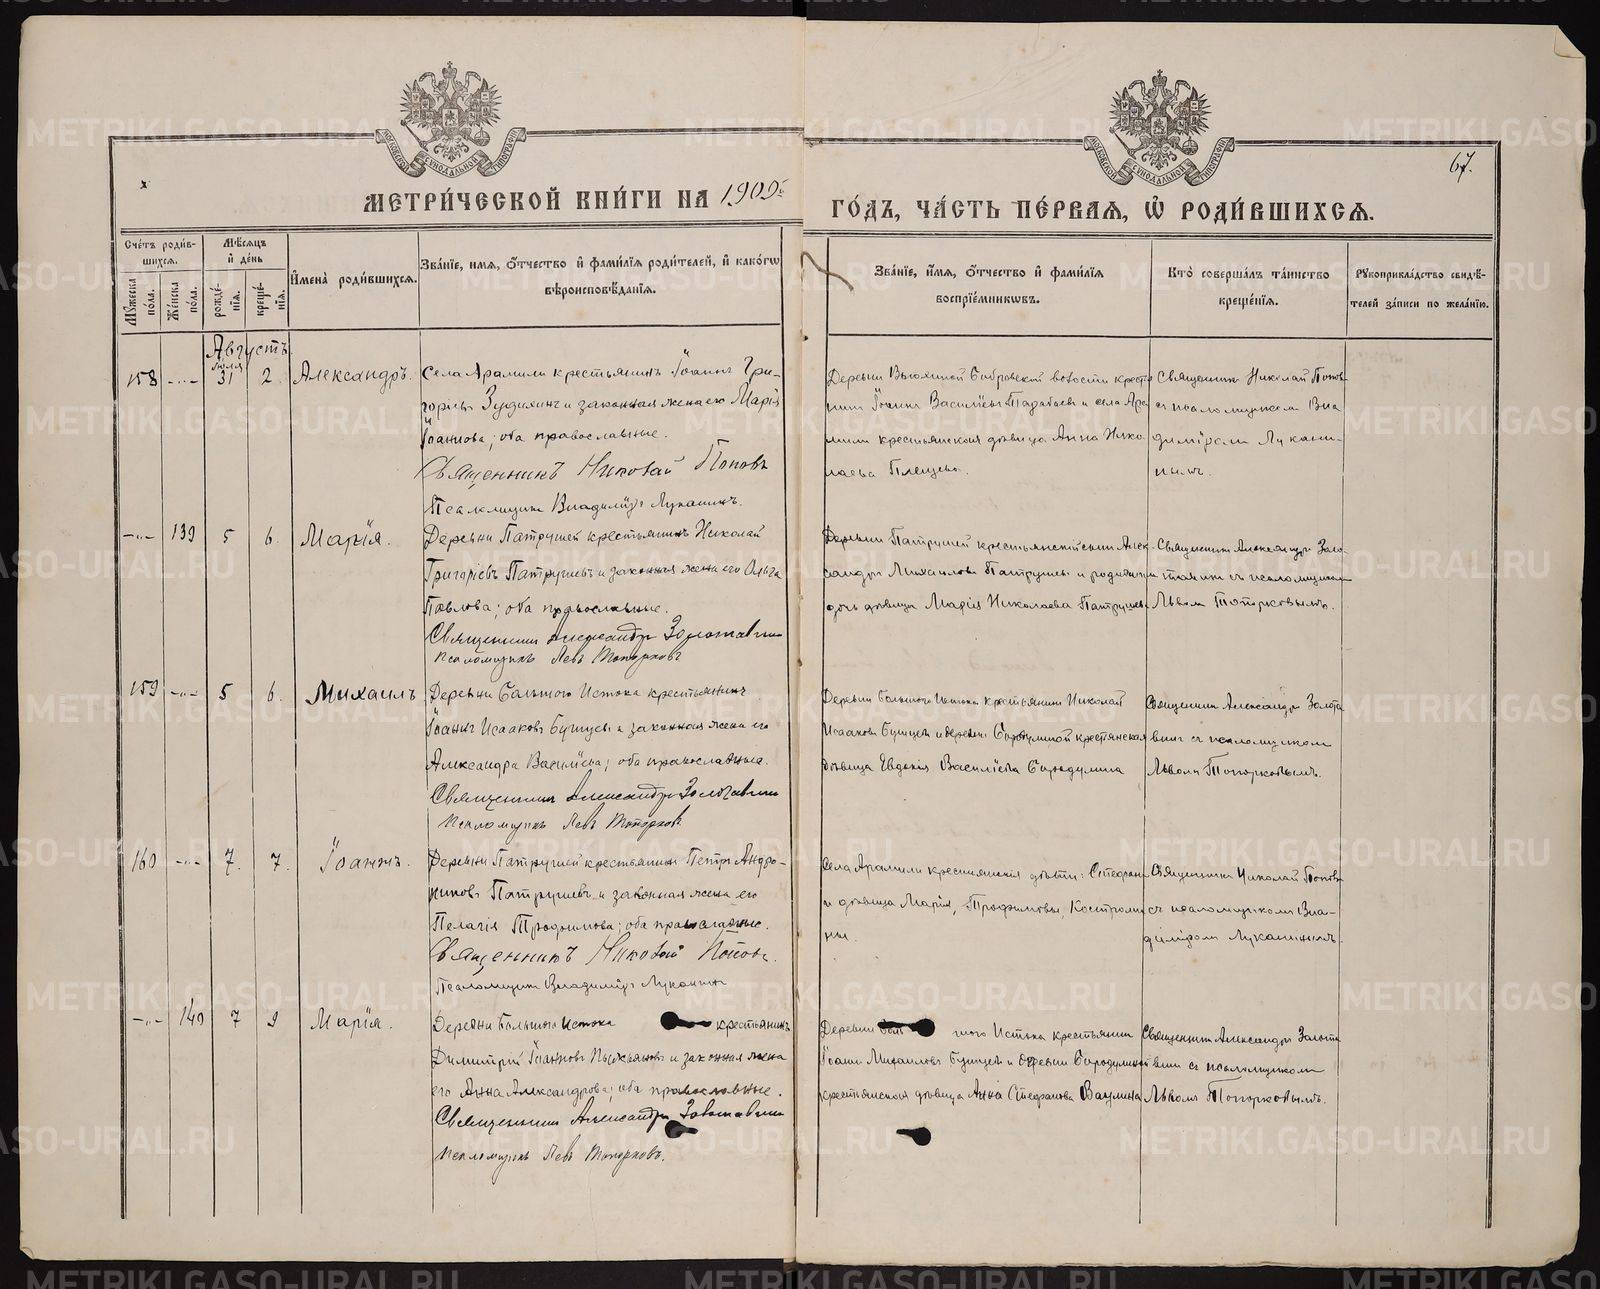 МЕТРИ́ЧЕСКОЙ КНИ́ГИ НА 1909
ГО́ДЪ, ЧА́СТЬ ПЕ́РВАЯ, Ѡ҆ РОДИ́ВШИХСЯ.
67.
Сче́тъ роди́в-
шихся.
Мѣсяцъ
и҆ де́нь
Мꙋжеска
по́ла.
Же́нска
по́ла.
рожде́-
нїя.
креще́-
нїя.
И҆мена̀ роди́вшихся.
Зва́нїе, имя, ѻ҆́тчество и҆ фами́лїя роди́телей, и҆ како́гѡ
вѣроисповѣ́данїя.
Зва́нїе, и҆́мя, ѻ҆́тчество и҆ фами́лїя
воспрїе́мникѡвъ.
Кто̀ соверша́лъ та́инство
креще́нїя.
Рꙋкоприкла́дство свидѣ́-
телей за́писи по жела́нїю.
Августъ
158 -"- Іюля 31 2 Александръ.
Села Арамили крестьянинъ Іоаннъ Гри-
горьевъ и законная жена его Марія
Іоаннова; оба православные.
Священникъ Николай Поповъ
Псаломщикъ Владиміръ Луканинъ.
Деревни Вьюхиной Бобровской волости кресть
нинъ Іоаннъ Васильевъ и села Ара
мили крестьянская дѣвица Анна Нико
лаева
Священникъ Николай Поповъ
съ псаломщикомъ Вла
диміромъ Лукани-
нымъ.
-"- 139 5 6 Марія.
Деревни Патрушей крестьянинъ Николай
Григоріевъ Патрушевъ и законная жена его Ольга
Павлова; оба православные.
Священникъ Александръ Золотавинъ
псаломщикъ Левъ Топорковъ
Деревни Патрушей крестьянскій сынъ Алек
сандръ Михаиловъ Патрушевъ и родителя
дочь дѣвица Марія Николаева Патрушева
Священникъ Александръ Золо-
тавинъ съ псаломщикомъ
Львомъ Топорковымъ.
159 -"- 5 6. Михаилъ
Деревни Большого Истока крестьянинъ
Іоаннъ Исааковъ и законная жена его
Александра Васильева; оба православные.
Священникъ Александръ Золотавинъ
псаломщикъ Левъ Топорковъ
Деревни Большого Истока крестьянинъ Николай
Исааковъ и деревни Бородулиной крестьянская
дѣвица Евдокія Васильева Бородулина
Священникъ Александръ Золота
винъ съ псаломщикомъ
Львомъ Топорковымъ.
160 -"- 7. 7. Іоаннъ.
Деревни Патрушей крестьянинъ Петръ Андро-
никовъ Патрушевъ и законная жена его
Пелагія Трофимова; оба православные.
Священникъ Николай Поповъ.
Псаломщикъ Владиміръ Луканинъ
Села Арамили крестьянскія дѣти: Стефанъ
и дѣвица Марія, Трофимовы, Костроми
ны.
Священникъ Николай Поповъ
съ псаломщикомъ Вла-
диміромъ Луканинымъ.
-"- 140 7 9 Марія.
Деревни Большого Истока крестьянинъ
Димитрій Іоанновъ и законная жена
его Анна Александрова; оба православные.
Священникъ Александръ Золотавинъ
псаломщикъ Левъ Топорковъ.
Деревни Большого Истока крестьянинъ
Іоаннъ Михаиловъ и деревни Бородулиной
крестьянская дѣвица Анна Стефанова
Священникъ Александръ Золота
винъ съ псаломщикомъ
Львомъ Топорковымъ.
METRIKI.GASO-URAL.RU